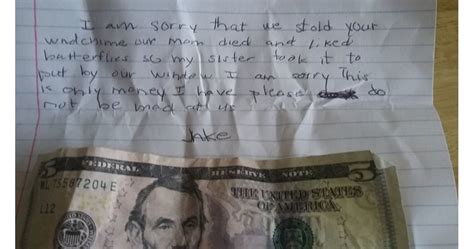 I am sorry that we stold your
windchime our mom died and liked
butterflies so my sister took it to
put by our window I am sorry This
is only money I have please do
not be mad at us
Jake
FEDERAL RESERVE NOTE
5
5
THE UNITED STATES
OF AMERICA
L12